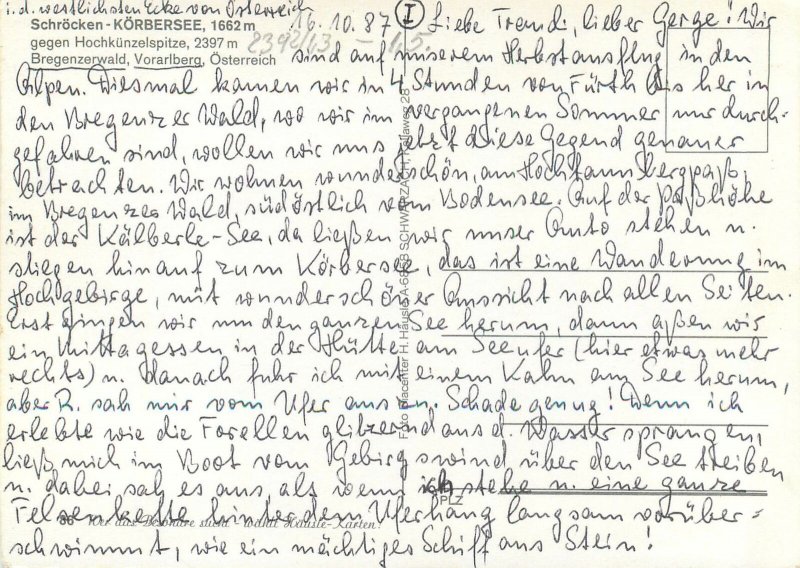 i. d. westlichsten Ecke von Österreich
Schröcken - KÖRBERSEE, 1662 m
gegen Hochkünzelspitze, 2397 m
Bregenzerwald, Vorarlberg, Österreich
16.10.87 I Liebe Trend, lieber Gerge! Wir
sind auf unserem Herbstausflug in den
Alpen. Diesmal kamen wir in 4 Stunden von Fürth bis her in
den Bregenzer Wald, wo wir im vergangenen Sommer nur durch-
gefahren sind, wollen wir uns jetzt diese Gegend genauer
betrachten. Wir wohnen wunderschön, am Hochtannbergpaß,
im Bregenzer Wald, südöstlich vom Bodensee. Auf der Paßhöhe
ist der Kälberle-See, da ließen wir unser Auto stehen u.
stiegen hinauf zum Körbersee, das ist eine Wanderung im
Hochgebirge, mit wunderschöner Aussicht nach allen Seiten.
Erst gingen wir um den ganzen See herum, dann aßen wir
ein Mittagessen in der Hütte am Seeufer (hier etwas mehr
rechts) u. danach fuhr ich mit einem Kahn am See herum,
aber R. sah mir vom Ufer aus zu. Schade genug! Denn ich
erlebte wie die Forellen glitzernd aus d. Wasser sprangen,
ließ mich im Boot vom Gebirgswind über den See treiben
u. dabei sah es aus als wenn ich stehe u. eine ganze
PLZ
Felsenkette hinter dem Uferhang langsam vorüber-
86 Wer das Besondere sucht - wählt Häusle-Karten!
schwimmt, wie ein mächtiges Schiff aus Stein!
Foto Diacenter H. Häusle, A-6858 SCHWARZACH, 28